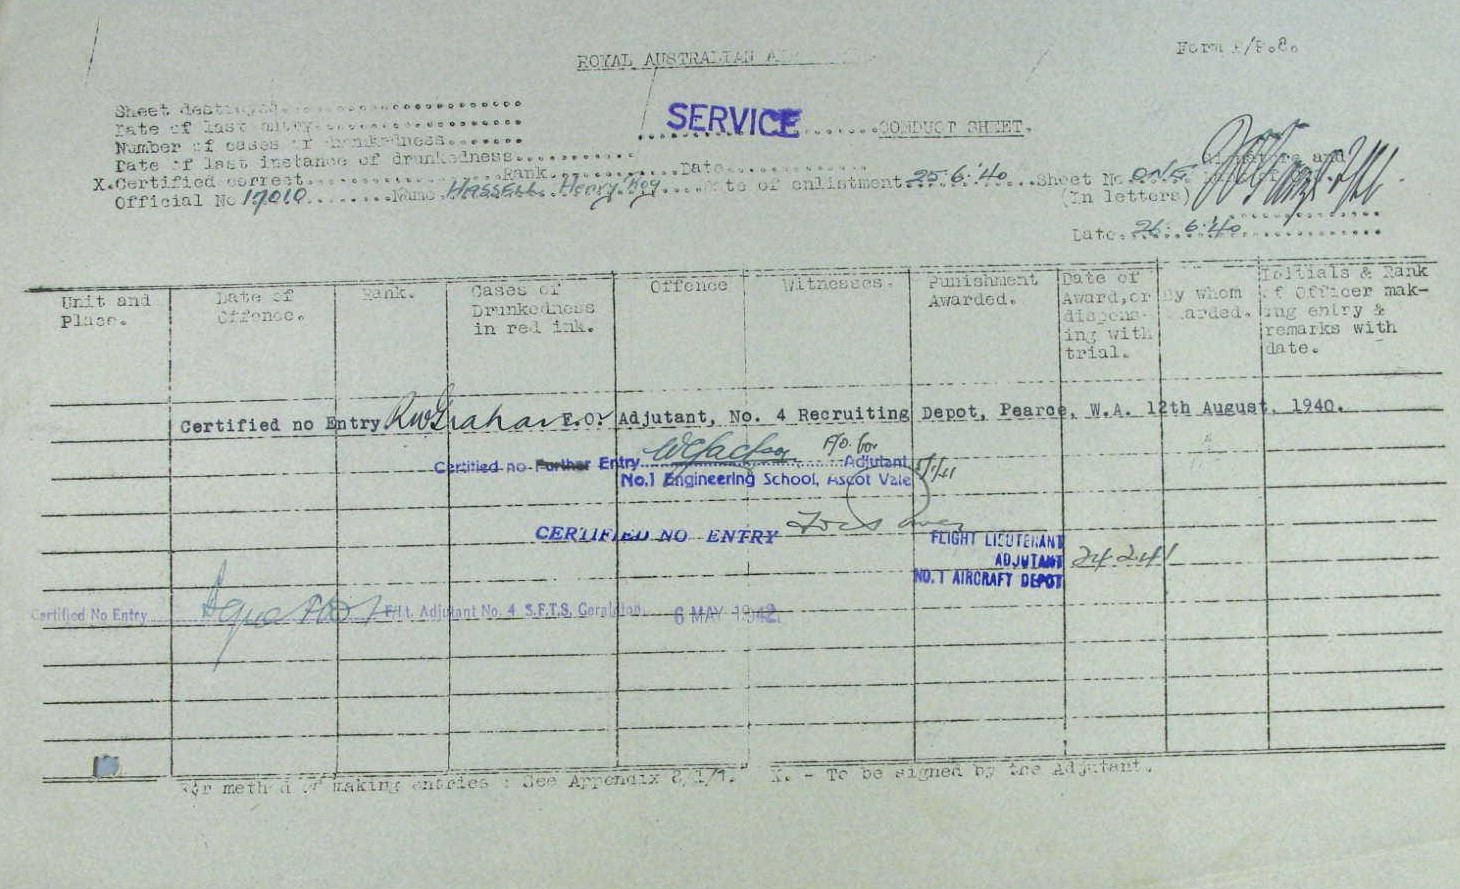 Form P/P.8.
ROYAL AUSTRALIAN
Sheet destroyed
Date of last entry
Number of cases of drunkedness
Date of last instance of drunkedness
SERVICE CONDUCT SHEET.
X.Certified correct Rank Date
Signature and
Official No 17010 Name HASSELL Henry Roy Date of enlistment 25.6.40 Sheet No. ONE
(In letters)
Date. 26.6.40
Unit and Place.
Date of Offence.
Rank.
Cases of Drunkedness in red ink.
Offence
Witnesses.
Punishment Awarded.
Date of Award,or dispens-ing with trial.
By whom awarded.
Initials & Rank of Officer mak-ing entry & remarks with date.
Certified no Entry RW Graham F.O. Adjutant, No. 4 Recruiting Depot, Pearce, W.A. 12th August, 1940.
Certified no Further Entry WG Jackson P/O. for Adjutant
No.1 Engineering School, Ascot Vale /1/41
CERTIFIED NO ENTRY
FLIGHT LIEUTENANT
ADJUTANT 24.2.41
NO.1 AIRCRAFT DEPOT
Certified No Entry F/Lt. Adjutant No. 4 S.F.T.S. Geraldton. 6 MAY 1942
For method of making entries : See Appendix 8/1/1. X. - To be signed by the Adjutant.